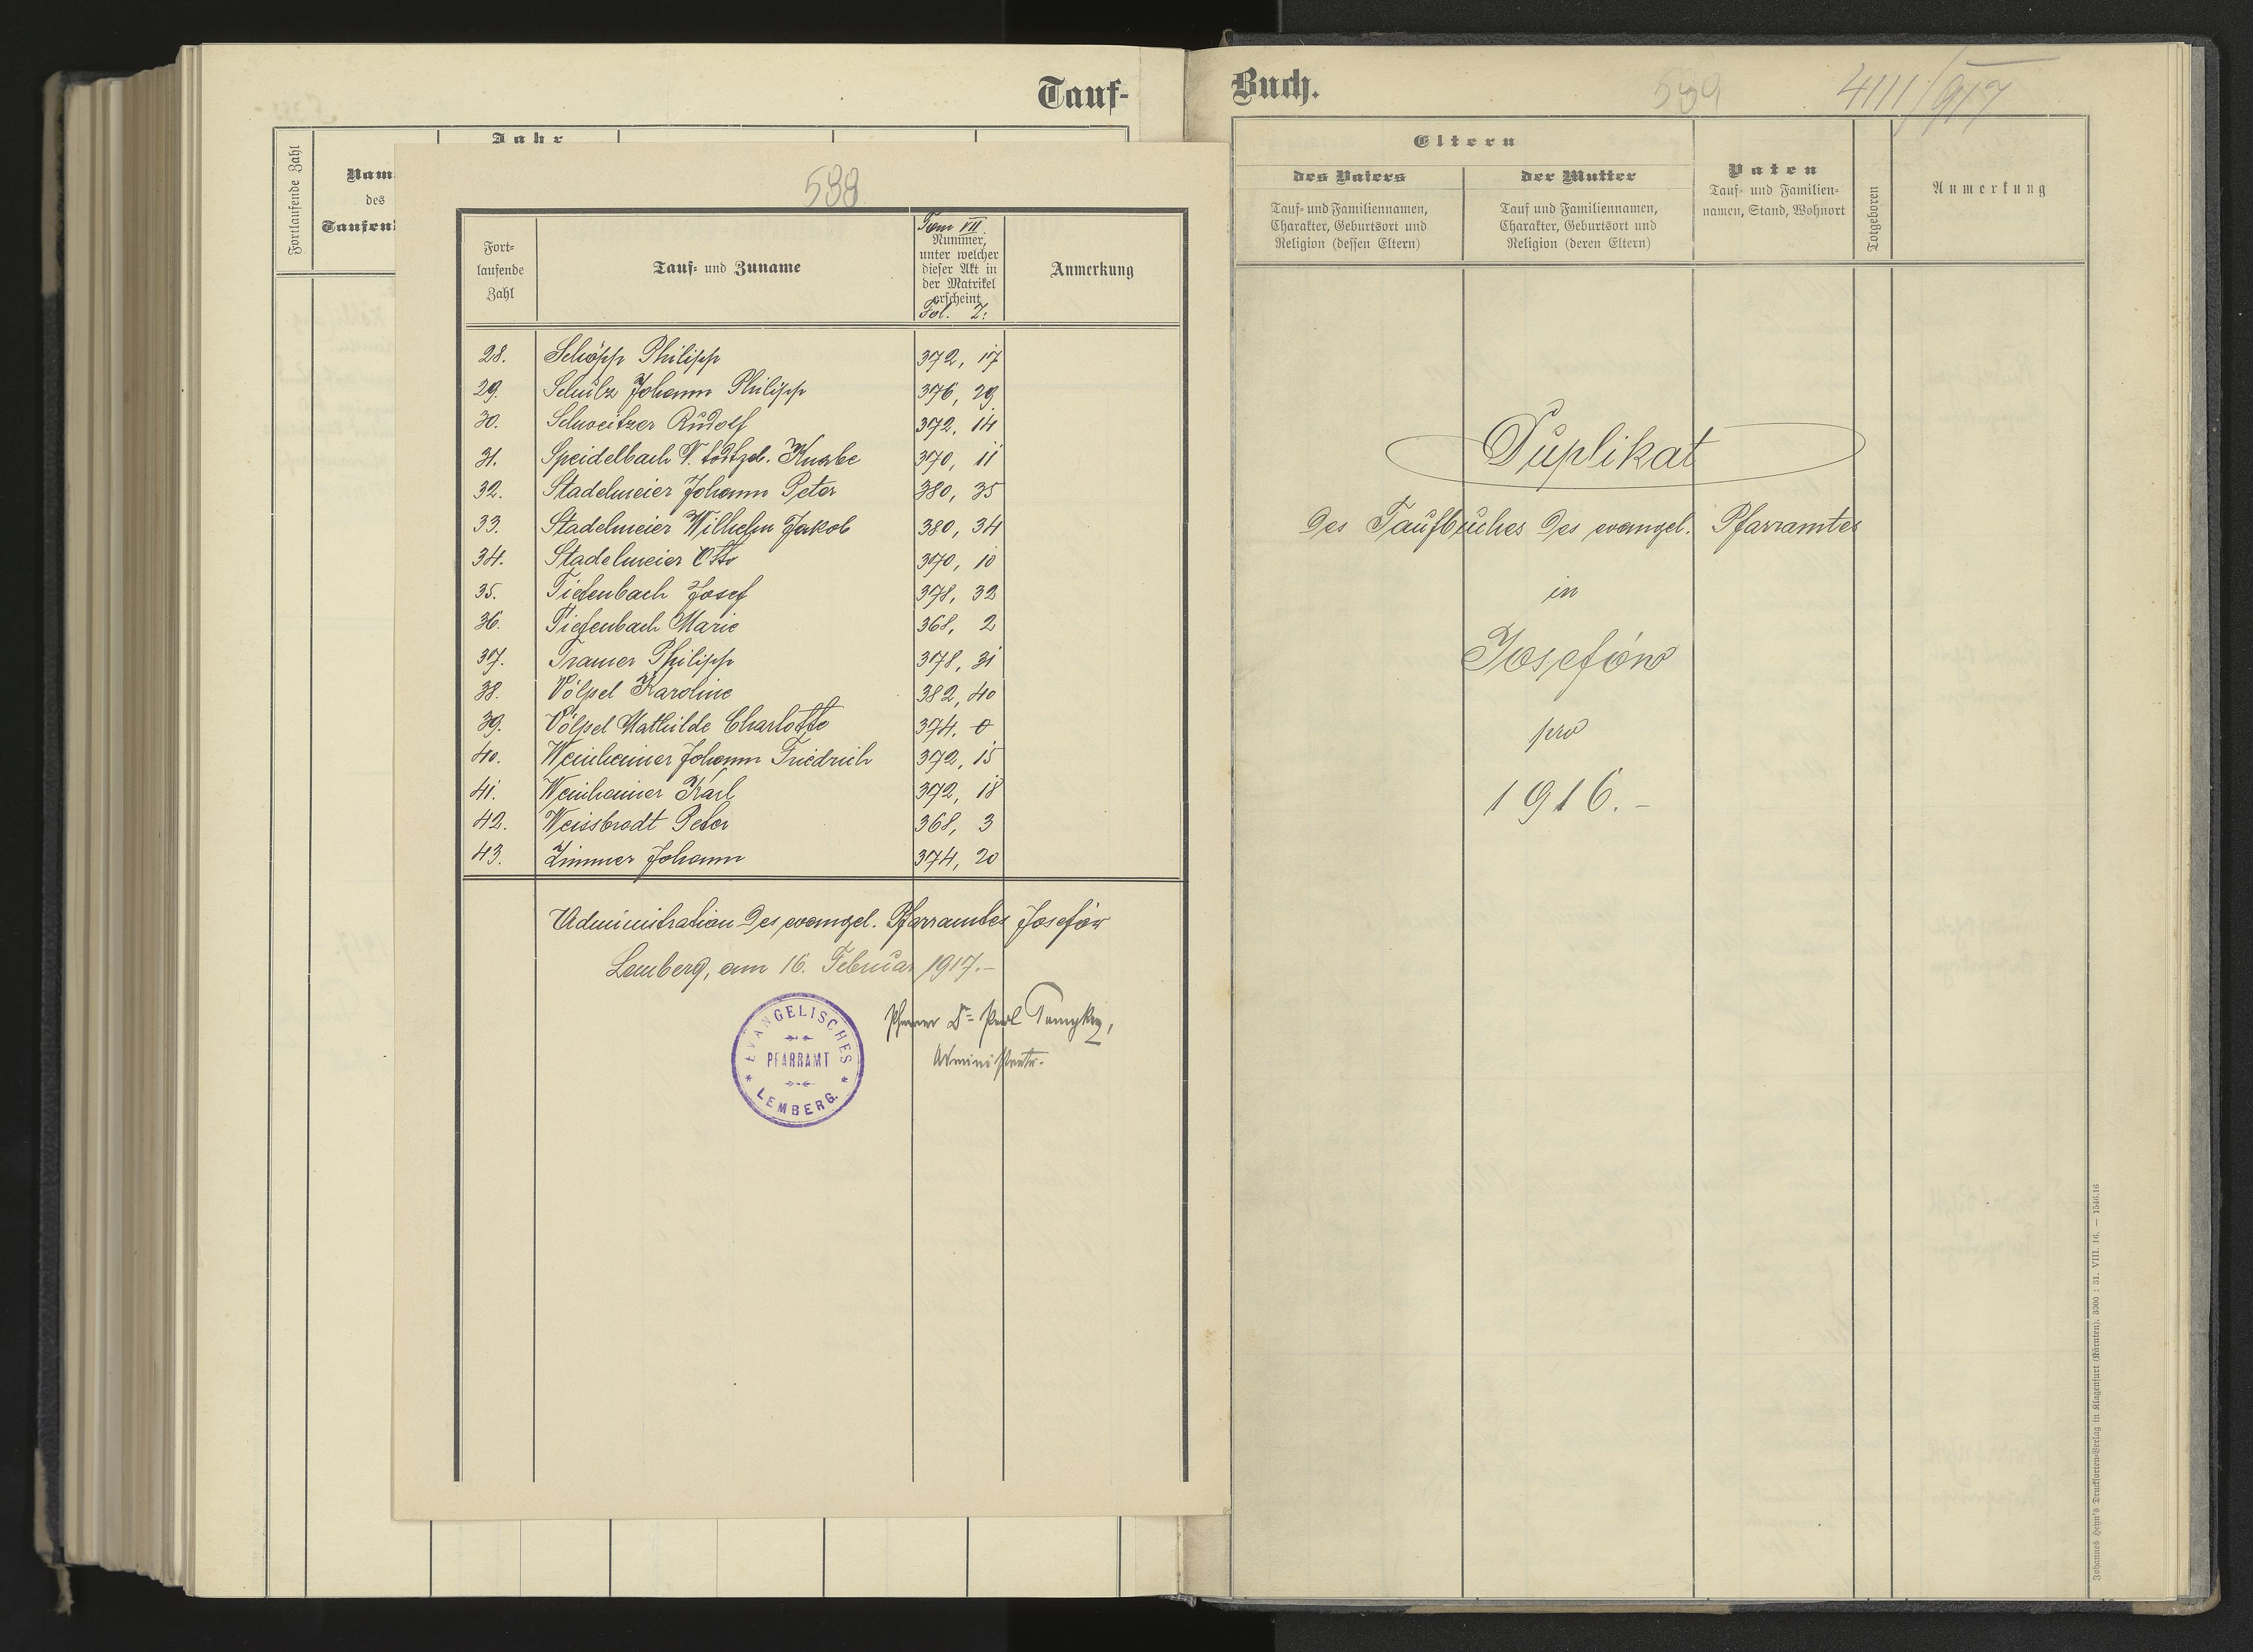 Tauf-
Fortlaufende Zahl
Nam
des
Taufen
Jahr
538
Fort-
laufende
Zahl
Tauf- und Zuname
Tom VII.
Nummer,
unter welcher
dieser Akt in
der Matrikel
erscheint
Fol. Z:
Anmerkung
28. Schöpp Philipp 372, 17
29. Schulz Johann Philipp 376, 29
30. Schweitzer Rudolf 372, 14
31. Speidelbach N. todtgeb. Knabe 370, 11
32. Stadelmeier Johann Peter 380, 35
33. Stadelmeier Wilhelm Jakob 380, 34
34. Stadelmeier Otto 370, 10
35. Tiefenbach Josef 378, 32
36. Tiefenbach Marie 368, 2
37. Tramer Philipp 378, 31
38. Völpel Karoline 382, 40
39. Völpel Mathilde Charlotte 374, 0
40. Weinheimer Johann Friedrich 372, 15
41. Weinheimer Karl 372, 18
42. Weissbrodt Peter 368, 3
43. Zimmer Johann 374, 20
Administration des evangel. Pfarramtes Josefów
Lemberg, am 16. Februar 1917.-
Pfarrer Dr. Paul
Administrator.
EVANGELISCHES
PFARRAMT
* LEMBERG. *
Buch.
539
4111/917
Eltern
des Vaters
Tauf- und Familiennamen,
Charakter, Geburtsort und
Religion (dessen Eltern)
der Mutter
Tauf und Familiennamen,
Charakter, Geburtsort und
Religion (deren Eltern)
Paten
Tauf- und Familien-
namen, Stand, Wohnort
Totgeboren
Anmerkung
Duplikat
des Taufbuches des evangel. Pfarramtes
in
Josefów
pro
1916.-
Johannes Heyn's Drucksorten-Verlag in Klagenfurt (Kärnten). 3000 : 31. VIII. 16. — 1546.16